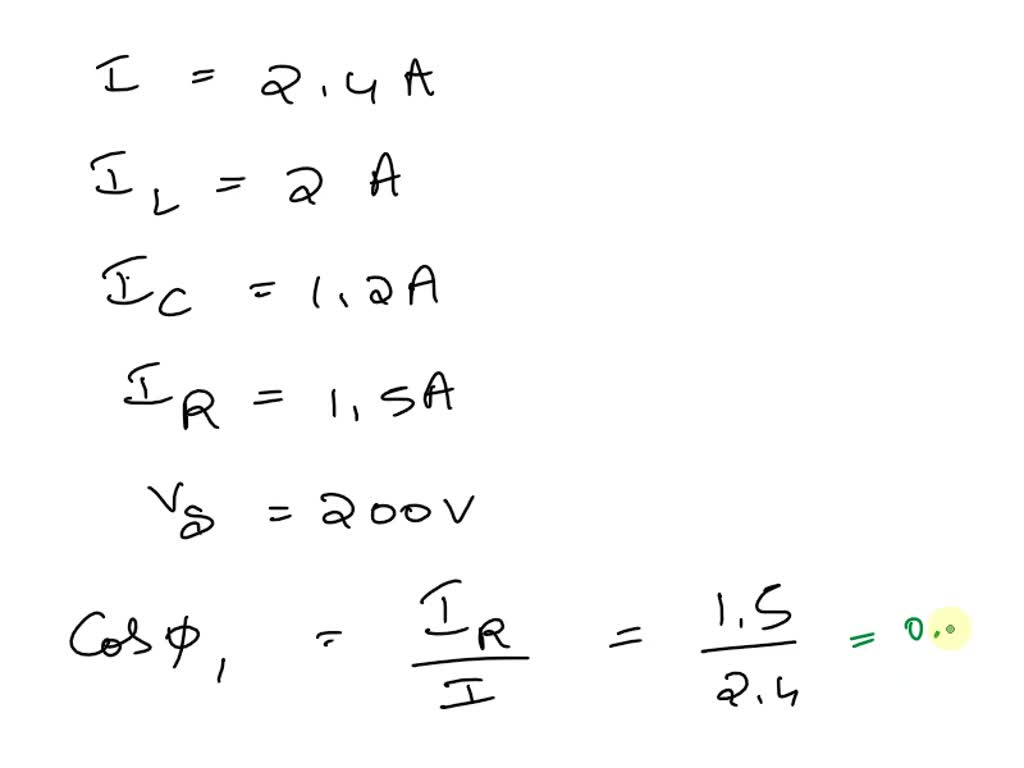 I = 2.4 A
I_L = 2 A
I_C = 1.2A
I_R = 1.5A
V_s = 200V
Cosφ₁ = I_R / I = 1.5 / 2.4 = 0.